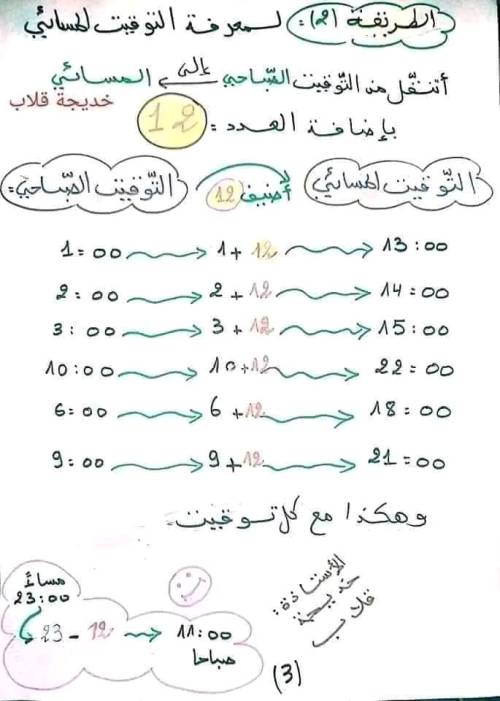 الطريقة (2): لمعرفة التوقيت المسائي
أتنقل من التّوقيت الصّباحي إلى المسائي
خديجة قلاب
بإضافة العدد: 12
التّوقيت الصّباحي: أضيف 12 التّوقيت المسائي
1:00 1+12 13:00
2:00 2+12 14:00
3:00 3+12 15:00
10:00 10+12 22:00
6:00 6+12 18:00
9:00 9+12 21:00
وهكذا مع كل توقيت.
مساءً
23:00
23-12 11:00
صباحا
الأستاذة:
خديجة
قلاب
(3)